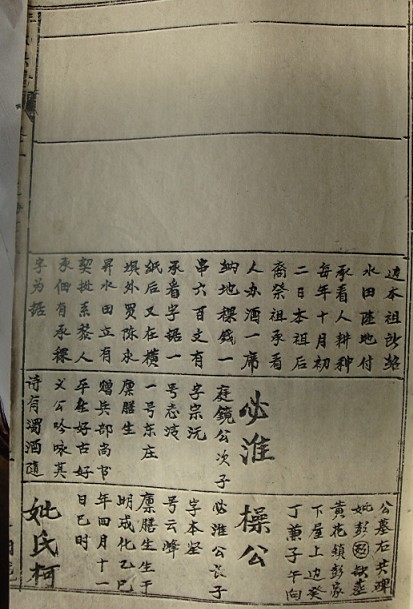 边本祖
水田陸地付
承看人耕种
每年十月初
二日本祖后
裔祭祖承看
人办酒一席
纳地稞錢一
串六百文有
承看字据一
纸后又在横
坝外買陈永
昇水田立有
契批系黎人
承佃有承稞
字为据
必淮
庭鏡公次子
字宗沅
号志
一号东庄
廪膳生
赠兵部尚书
平生好古好
义公吟咏其
诗有濁酒隨
公墓石共碑
妣彭
黄花頭彭家
下屋上边癸
丁兼子午向
操公
必淮公长子
字本坚
号云峰
廪膳生生于
明成化乙巳
年四月十一
日巳时
妣氏柯